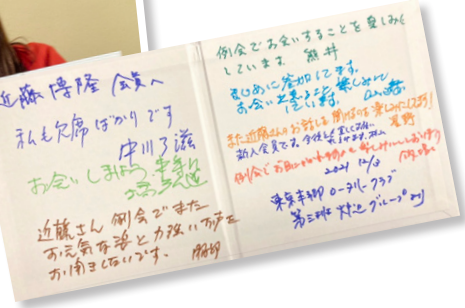 近藤博隆 会員へ
私も欠席ばかりです
中川了滋
お会いしましょう
近藤さん 例会でまた
お元気な姿と力強いお声を
お聞きしたいです。
例会でお会いすることを楽しみに
しています 熊井
まじめに参加してます。
お会い出来ること楽しみにして
います。
また近藤さんのお話しを聞けるのを楽しみにしてます!
星野
新人会員です。
例会でお目にかかれるのを楽しみにしております
2021 12/2
東京京橋ロータリークラブ
第三班 炉辺グループより